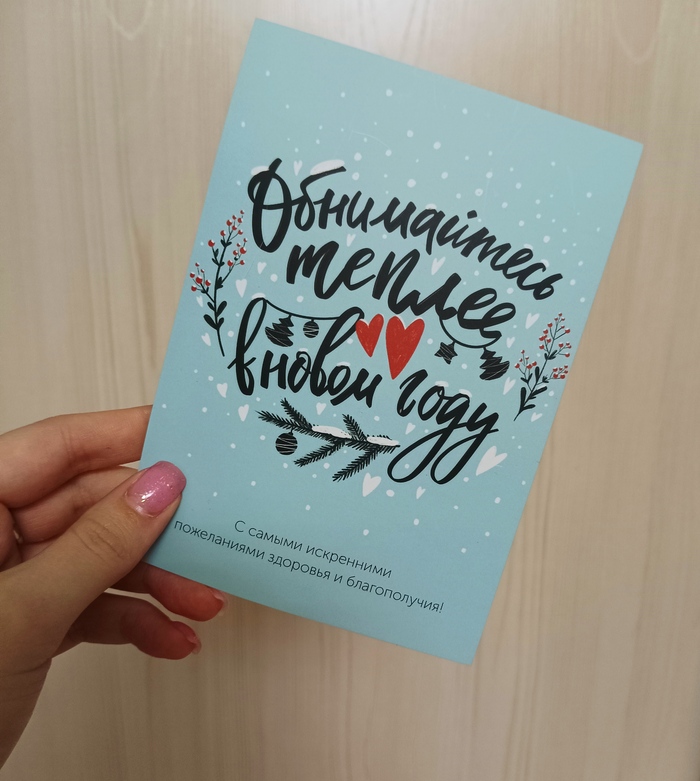 Обнимайтесь
теплее
в новом году
С самыми искренними
пожеланиями здоровья и благополучия!